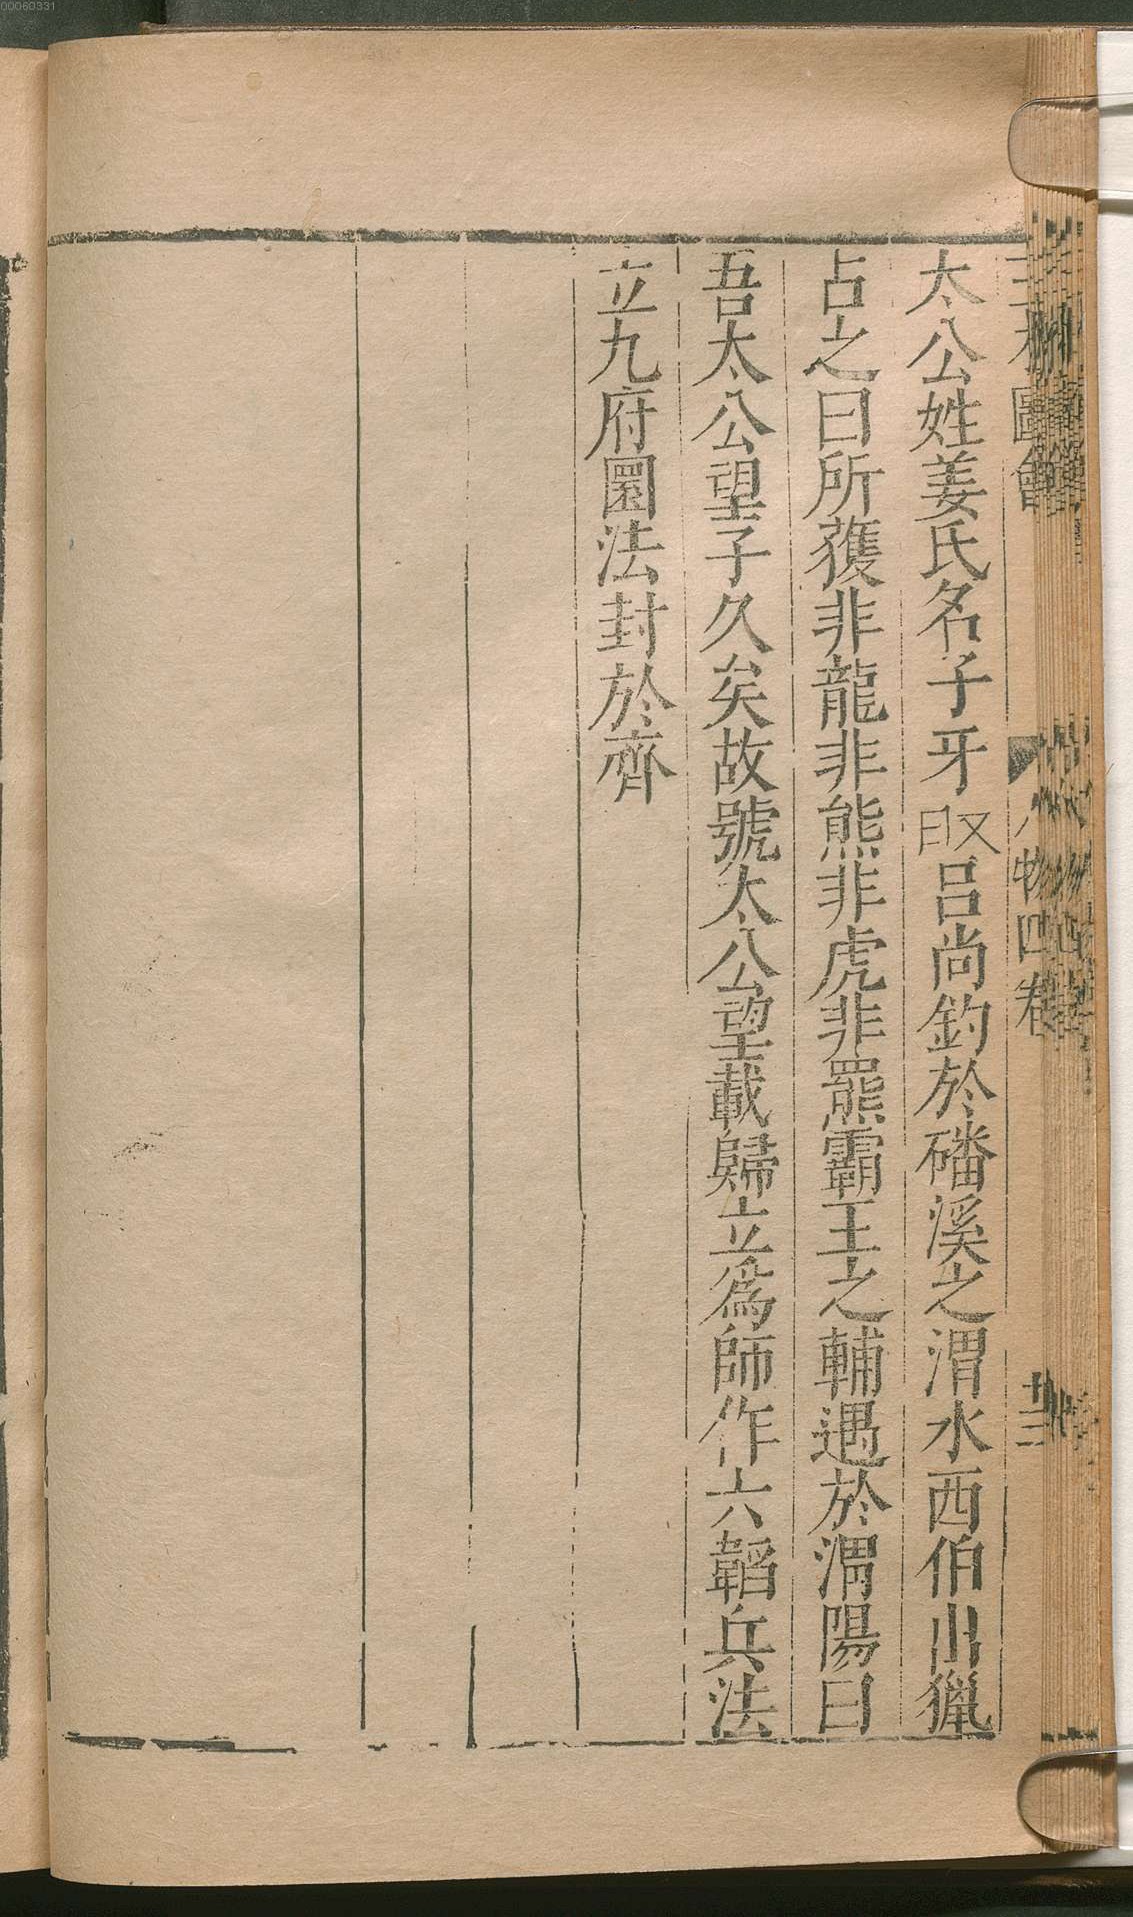 00060331
三才圖會 人物四卷 廿三
太公姓姜氏名子牙 呂尚釣於磻溪之渭水西伯出獵
占之曰所獲非龍非熊非虎非羆霸王之輔遇於渭陽曰
吾太公望子久矣故號太公望載歸立爲師作六韜兵法
立九府圜法封於齊